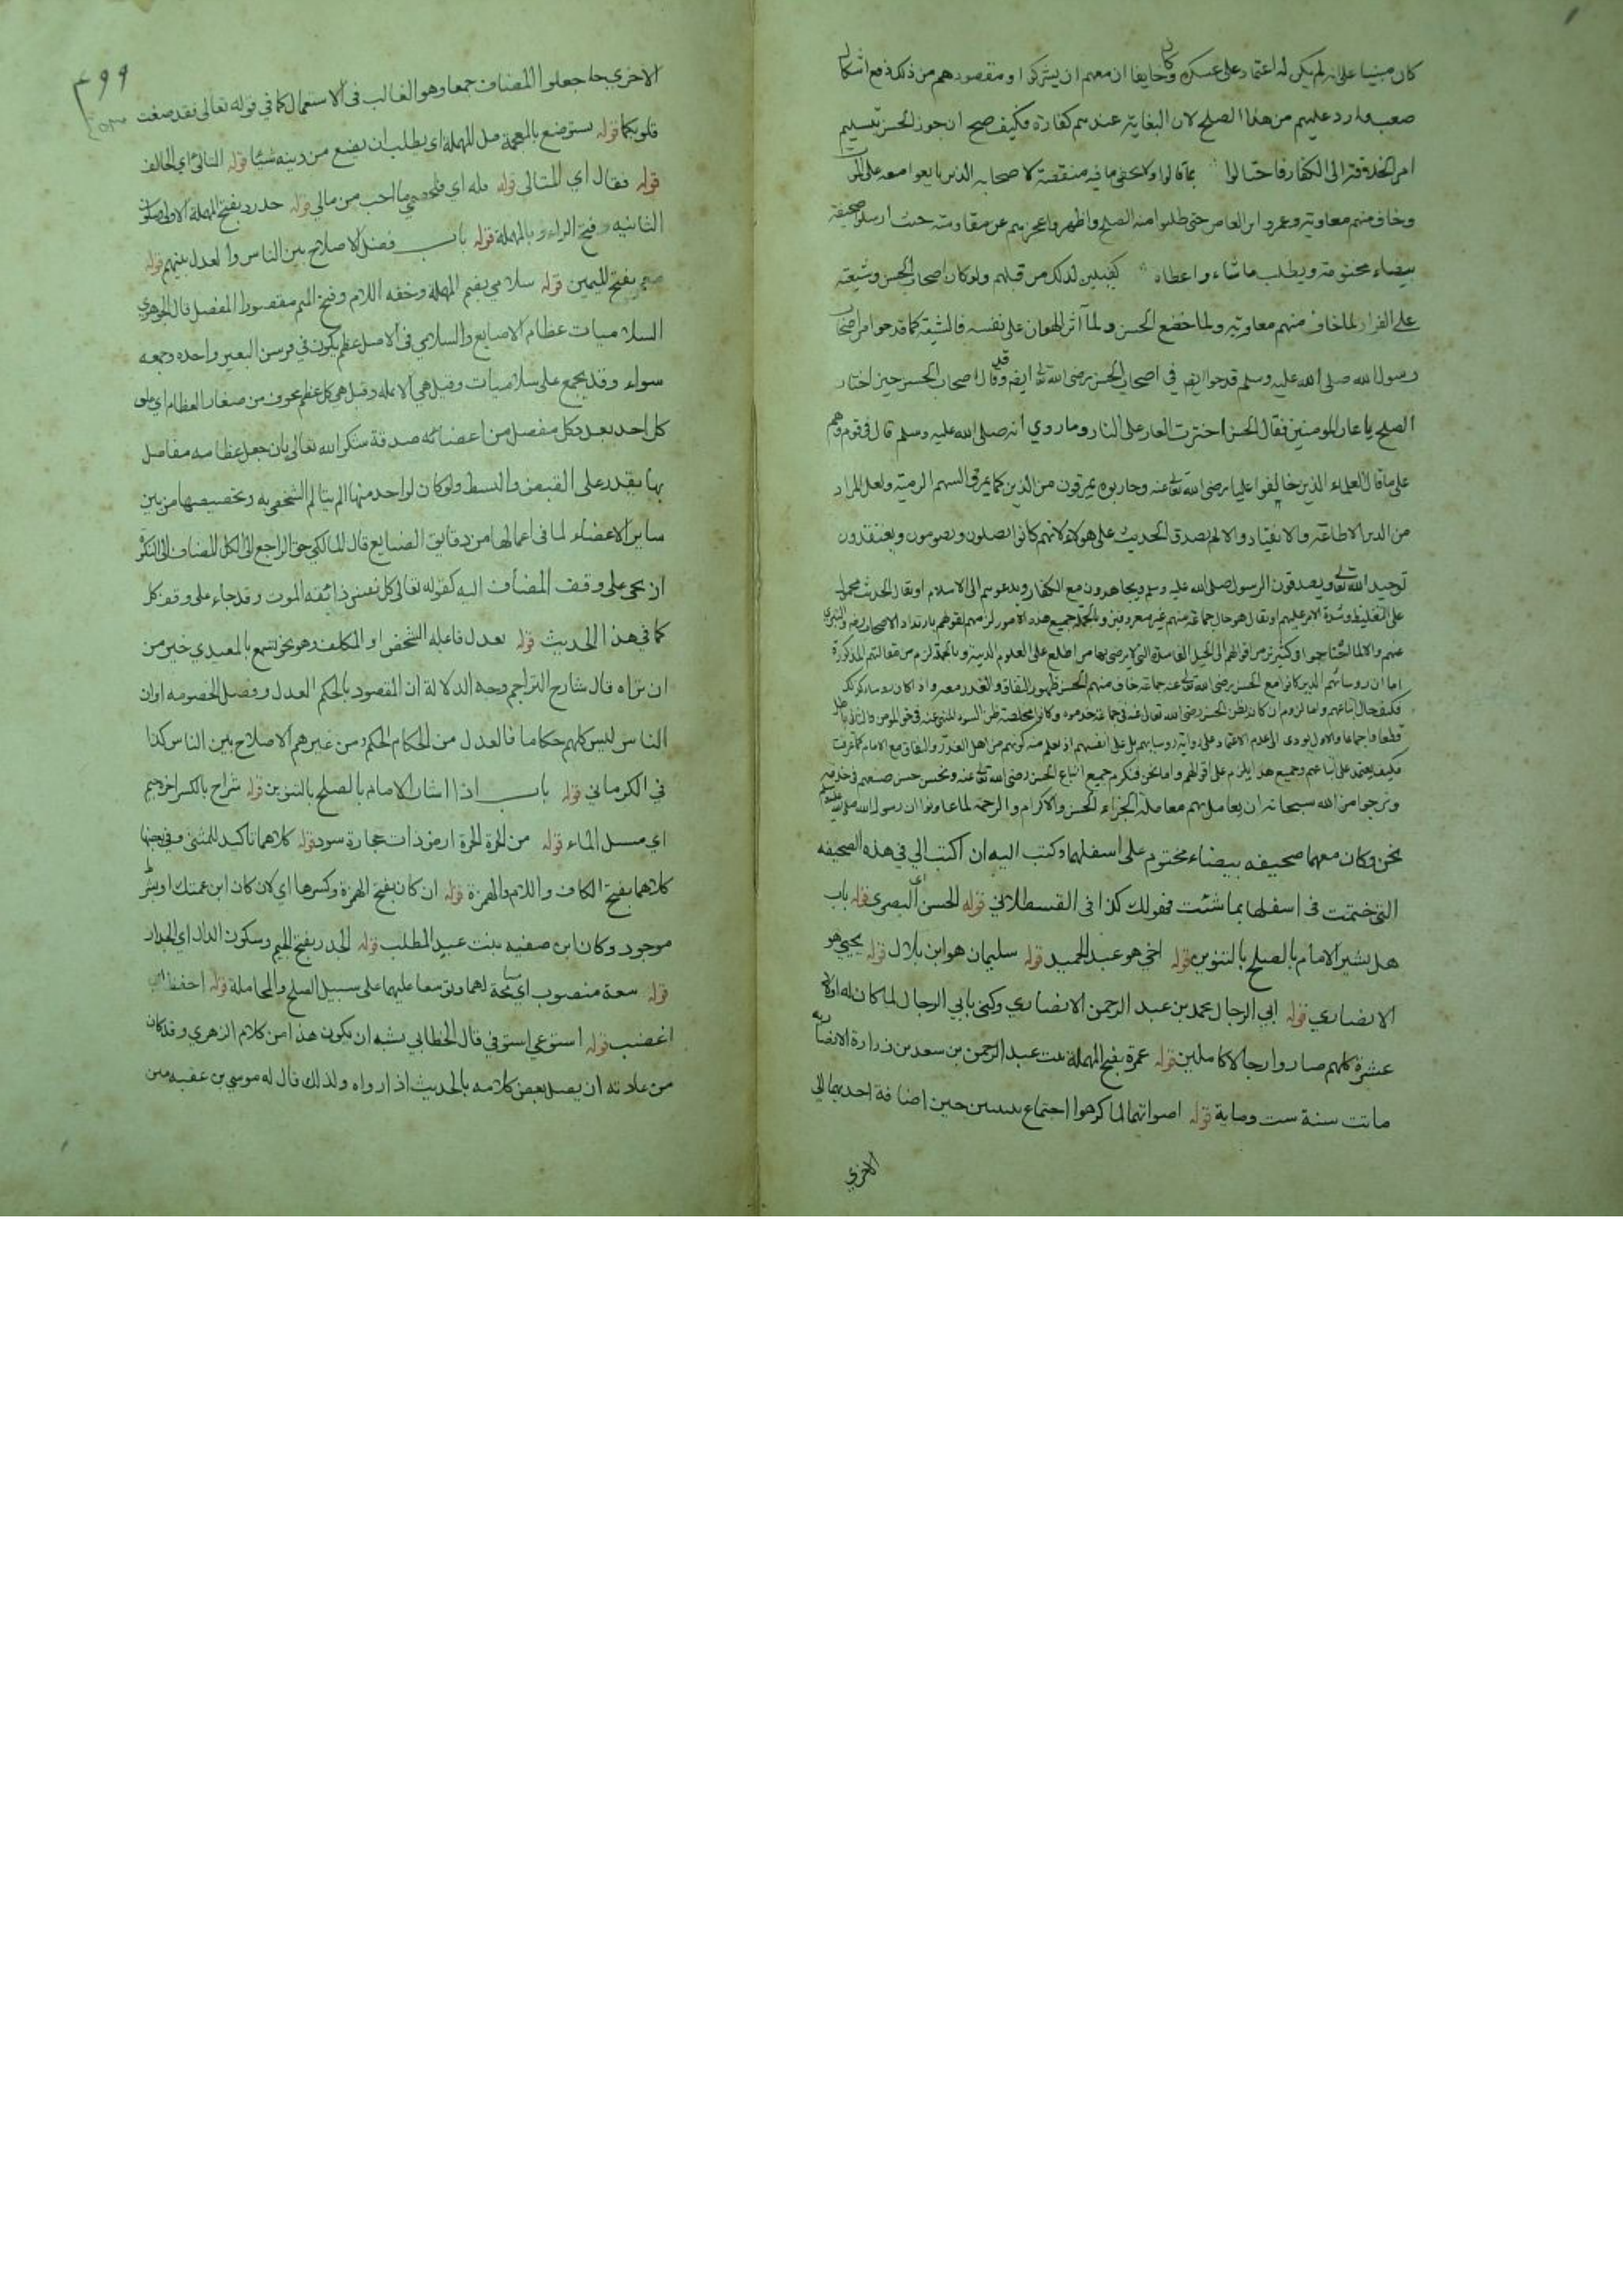 كان مبنيا على انه لم يكن له اعتماد على عسكره وكان خايفا ان معهم ان يتركوا ومقصودهم من ذلك دفع اشكال
صعب وارد عليهم من هذا الصلح لان البغاية عندهم كفارة فكيف صح ان جوز الحسن تسليم
امر الخلافة الى الكفار فاحتالوا بما قالوا ولا يخفى ما فيه منقصة لاصحابه الذين بايعوا معه على الموت
وخاف منهم معاوية وعمرو ابن العاص حتى طلبوا منه الصلح واظهروا عجزهم عن مقاومته حيث ارسلوا صحيفة
بيضاء مختومة ويطلب ما شاء واعطاه كفيلين لذلك من قبلهم ولو كان اصحاب الحسن وشيعته
على الفرار لما خاف منهم معاوية ولما خضع الحسن ولما آثر الهوان على نفسه فالشيعة كما قدحوا من اصحاب
رسول الله صلى الله عليه وسلم قدحوا ايضا في اصحاب الحسن رضى الله تعالى ايضا وقد قال اصحاب الحسن حين اختار
الصلح يا عار المومنين فقال الحسن اخترت العار على النار وما روي انه صلى الله عليه وسلم قال في قوم وهم
على ما قال العلماء الذين خالفوا عليا رضى الله تعالى عنه وحاربوه يمرقون من الدين كما يمرق السهم الرمية ولعل المراد
من الدين الاطاعة والانقياد والا لم يصدق الحديث على هولاء لانهم كانوا يصلون ويصومون ويعتقدون
توحيد الله تعالى ويصدقون الرسول صلى الله عليه وسلم ويجاهدون مع الكفار ويدعوهم الى الاسلام او نقال الحديث محمول
على التغليظ وشدة الامر عليهم او نقال هو حال جماعة منهم غير معروفين وبالجملة جميع هذه الامور لزمهم لقولهم بارتداد الاصحاب
عنهم والا لما احتاجوا في كثير من اقوالهم الى الحيل الفاسدة التي لا يرضى بها من اطلع على العلوم الدينية وبالجملة لزم من مقالتهم المذكورة
اما ان روسائهم الذين كانوا مع الحسن رضى الله تعالى عنه جماعة خاف منهم الحسن ظهور النفاق والغدر معه واذا كان روساء كذلك
فكيف حال اتباعهم واما لزوم ان كان يظن الحسن رضى الله تعالى عنه في جماعة خدموه وكانوا مخلصة ظن السوء المنهى عنه في حق المومن والثانى باطل
قطعا واجماعا والاول يودى الى عدم الاعتماد على رواية روسايهم بل على انفسهم اذ يعلم منه كونهم من اهل الغدر والنفاق مع الامام كما عرفت
فكيف يعتمد على اتباعهم وجميع هذا يلزم على اقوالهم واما نحن فنكرم جميع اتباع الحسن رضى الله تعالى عنه ونحسن حسن صنعهم في خدمته
ونرجوا من الله سبحانه ان يعاملهم معاملة الجزاء الحسن والاكرام والرحمة لما عاونوا ابن رسول الله صلى الله عليه وسلم
نحن وكان معهما صحيفه بيضاء مختوم على اسفلها وكتب اليه ان اكتب الي في هذه الصحيفه
التي ختمت في اسفلها بما شئت فهو لك كذا في القسطلاني قوله الحسن اى البصري قوله باب
هل يشير الامام بالصلح بالتنوين قوله اخي هو عبد الحميد قوله سليمان هو ابن بلال قوله يحيي هو
الانصاري قوله ابي الرجال محمد بن عبد الرحمن الانصاري وكني بابي الرجال لما كان له اولاد
عشرة كلهم صاروا رجالا كاملين قوله عمرة بفتح المهملة بنت عبد الرحمن بن سعد بن زرارة الانصارية
ماتت سنة ست وماية قوله اصواتهما لما كرهوا اجتماع تثنيتين حين اضافة احديهما الي
الاخري
٤٩٩
الاخري جا جعلوا المضاف جمعا وهو الغالب في الاستعمال كما في قوله تعالى فقد صغت
قلوبكما قوله يستوضع بالمعجمة قبل المهملة اي يطلب ان يضع من دينه شيئا قوله المتالى اي الحالف
قوله فقال اي المتالى قوله فله اي فلخصمي ما احب من مالي قوله حدرد بفتح المهملة الاولى وسكون
الثانيه وفتح الراء وبالمهملة قوله باب فضل الاصلاح بين الناس والعدل بينهم قوله
معمر بفتح الميمين قوله سلامي بضم المهملة وخفه اللام وفتح الميم مقصورا المفصل قال الجوهري
السلاميات عظام الاصابع والسلامي في الاصل عظم يكون في فرسن البعير واحده وجمعه
سواء وقد يجمع على سلاميات وقيل هي الانمله وقيل هي كل عظم مجوف من صغار العظام اي على
كل احد بعدد كل مفصل من اعضائه صدقة شكر الله تعالى بان جعل عظامه مفاصل
بها يقدر على القبض والبسط ولو كان لواحد منها الم يتالم الشخص به وتخصيصها من بين
ساير الاعضاء لما في اعمالها من دقايق الصنايع قال المالكي حق الراجع الى الكل المضاف الى النكرة
ان يجى على وفق المضاف اليه كقوله تعالى كل نفس ذائقه الموت وقد جاء على وفق كل
كما في هذا الحديث قوله يعدل فاعله الشخص او المكلف وهو نحو تسمع بالمعيدي خير من
ان تراه قال شارح التراجم وجه الدلالة ان المقصود بالحكم العدل وفصل الخصومه او ان
الناس ليس كلهم حكاما فالعدل من الحكام الحكم ومن غيرهم الاصلاح بين الناس كذا
في الكرماني قوله باب اذا اشار الامام بالصلح بالتنوين قوله شراج بالكسر اخره جيم
اي مسيل الماء قوله من الحرة الحرة ارض ذات حجارة سود قوله كلاهما تاكيد للمثنى وفي بعضها
كلاهما بفتح الكاف واللام والهمزة قوله ان كان بفتح الهمزة وكسرها اي لان كان ابن عمتك
موجود وكان ابن صفيه بنت عبد المطلب قوله الجدر بفتح الجيم وسكون الدال اي الجدار
قوله سعة منصوب اي مسامحة لهما وتوسعا عليهما على سبيل الصلح والمجاملة قوله احفظ اي
اغضب قوله استوعي استوفي قال الخطابي يشبه ان يكون هذا من كلام الزهري وقد كان
من عادته ان يصل بعض كلامه بالحديث اذا رواه ولذلك قال له موسي بن عقبه من